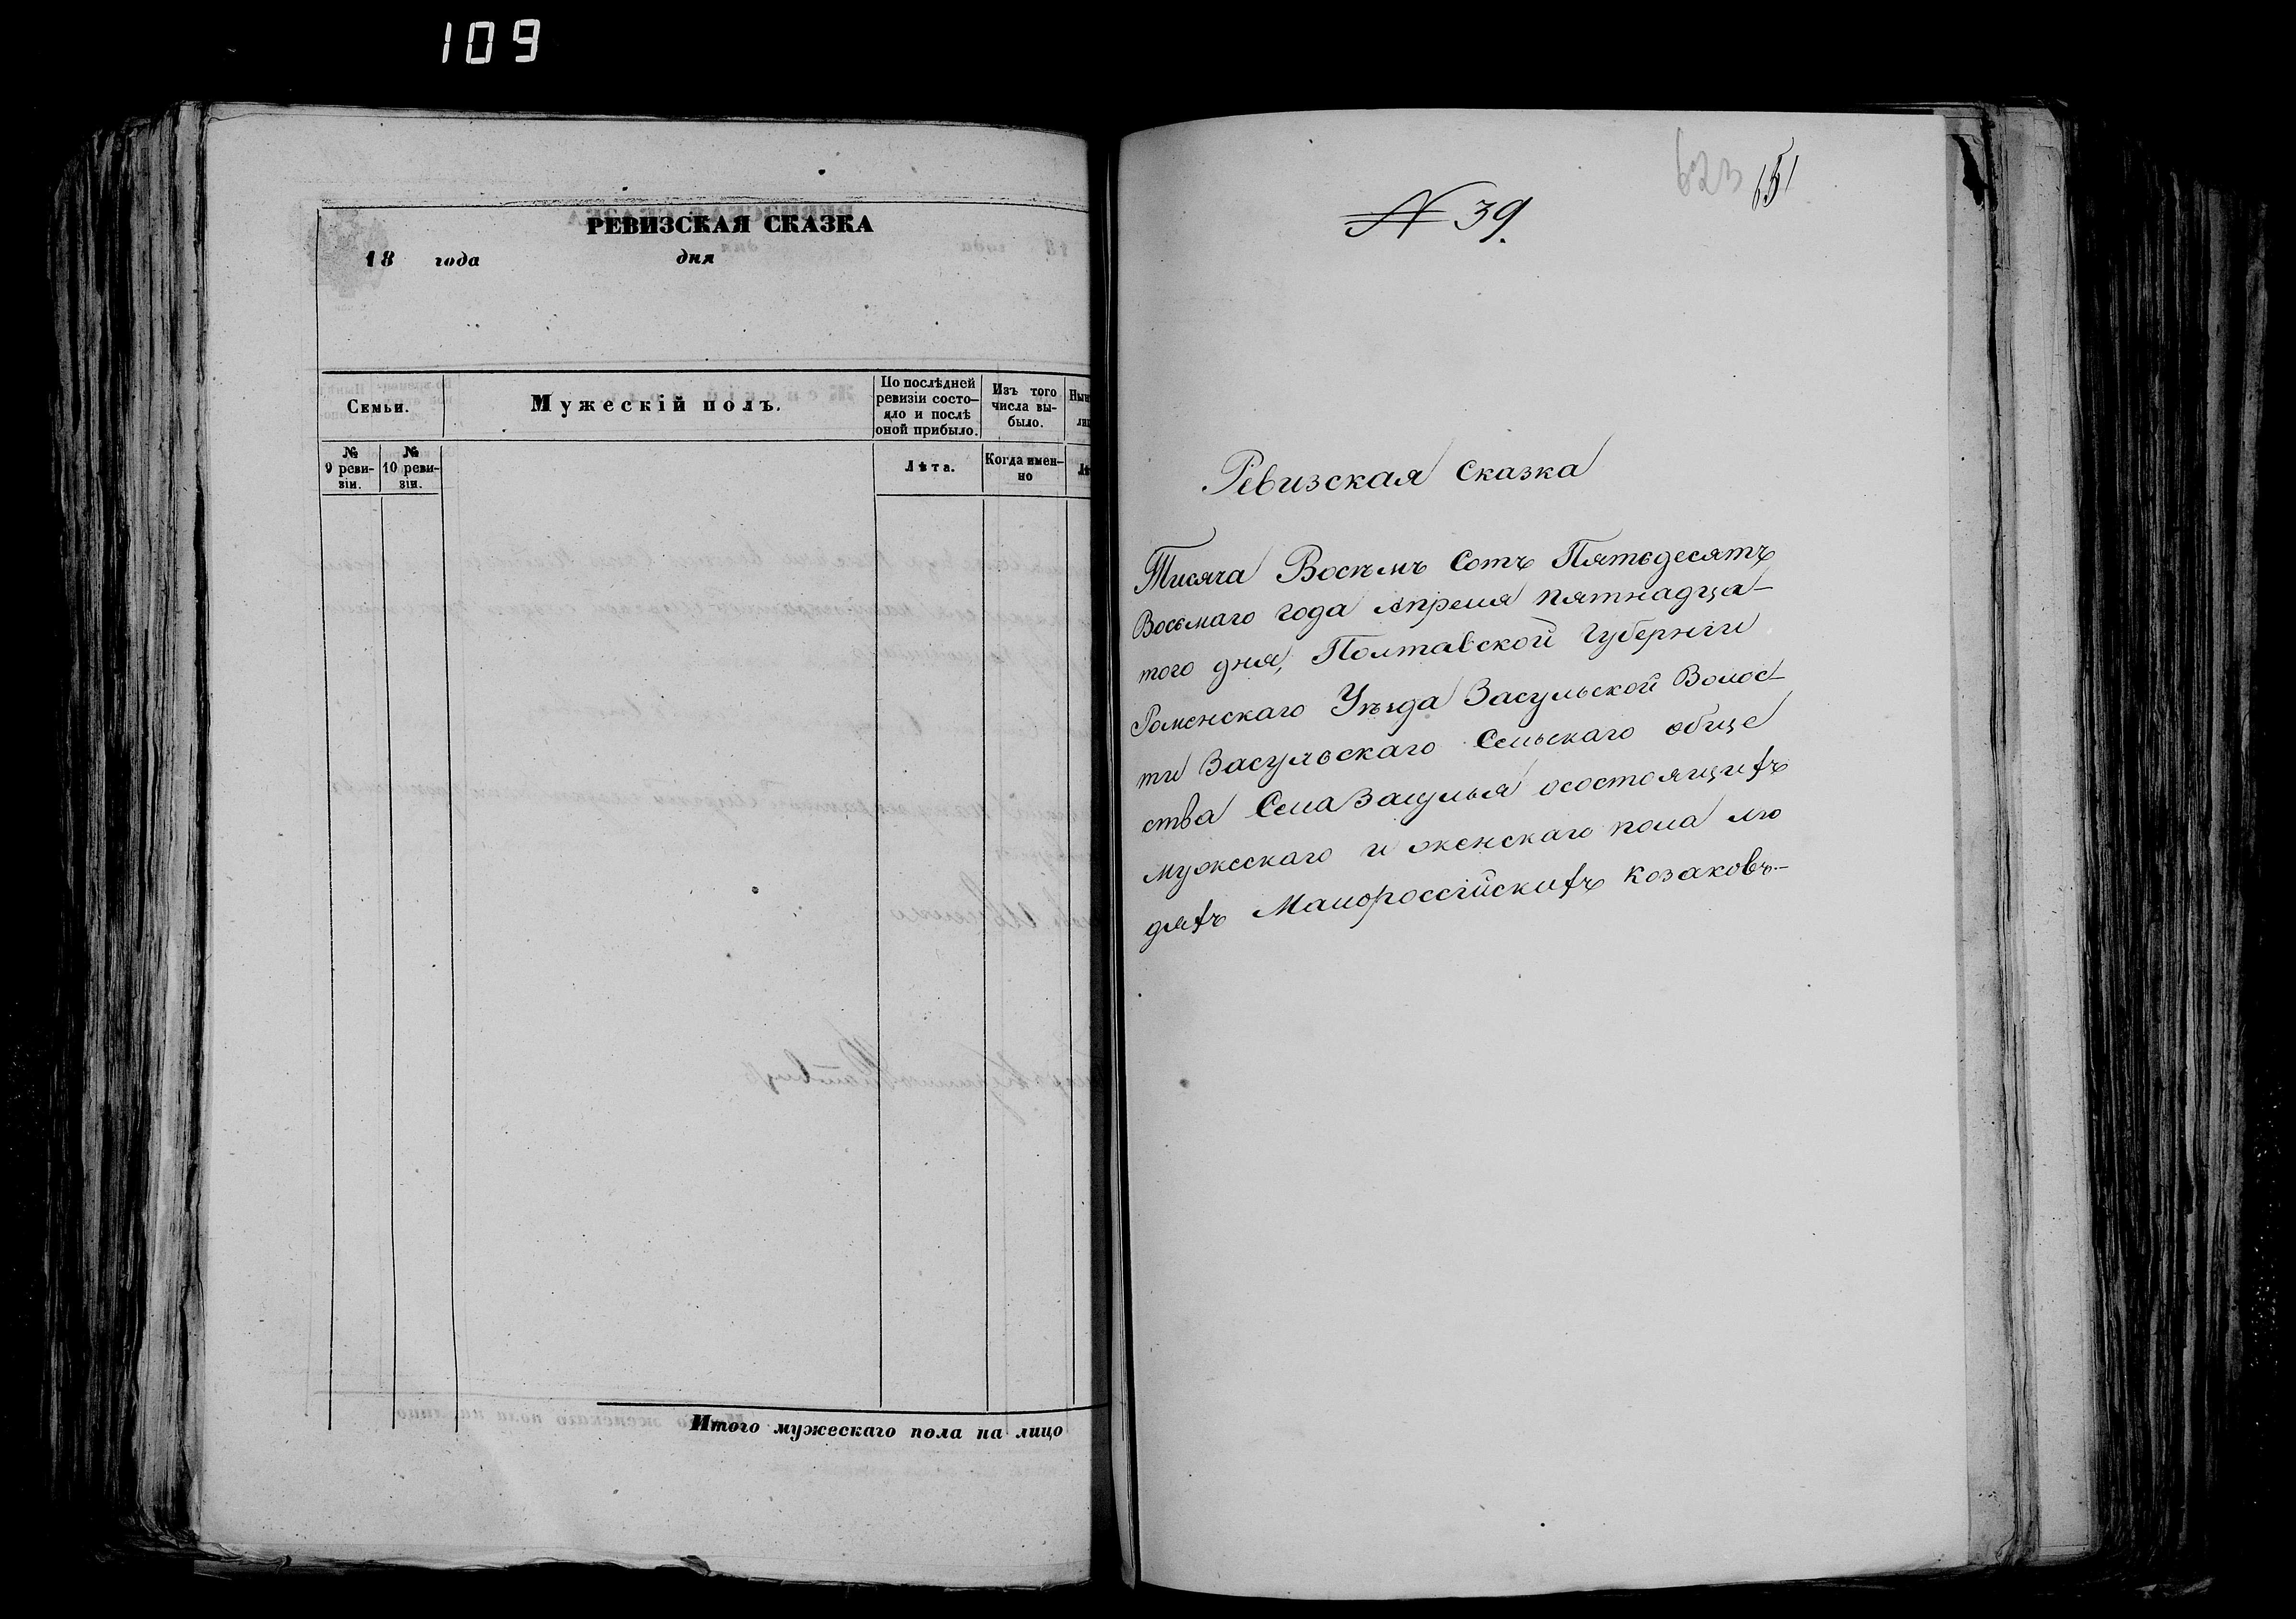 109
РЕВИЗСКАЯ СКАЗКА
18 года дня
Семьи.
Мужескій полъ.
По послѣдней
ревизіи состо-
яло и послѣ
оной прибыло.
Изъ того
числа вы-
было.
№
9 реви-
зіи.
№
10 реви-
зіи.
Лѣта.
Когда имен-
но
Итого мужескаго пола на лицо
623 651
№ 39.
Ревизская Сказка
Тисяча Восѣмъ Сотъ Пятьдесятъ
Восьмаго года Апреля пятнадца-
того дня, Полтавской Губерніи
Роменскаго Уѣзда Засульской Волос-
ти Засульскаго Сельскаго обще
ства Села Засулья осостоящихъ
мужескаго и женскаго пола лю
дяхъ Малороссійскихъ Козаковъ.-